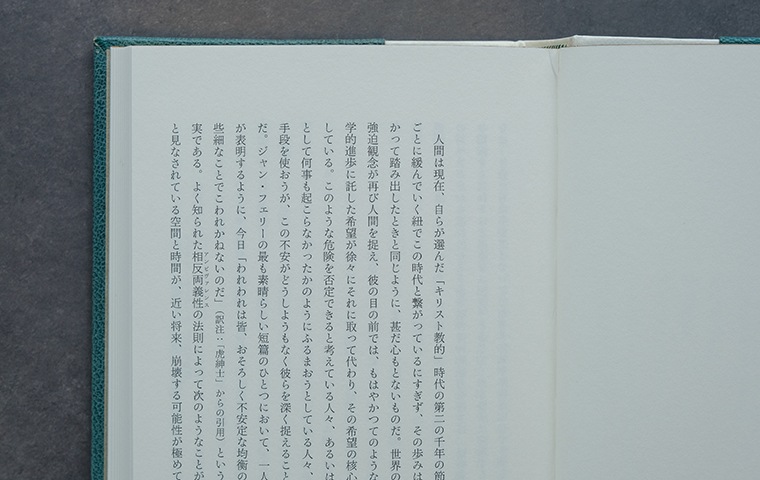 人間は現在、自らが選んだ「キリスト教的」時代の第二の千年の節
ごとに緩んでいく紐でこの時代と繋がっているにすぎず、その歩みは
かつて踏み出したときと同じように、甚だ心もとないものだ。世界の
強迫観念が再び人間を捉え、彼の目の前では、もはやかつてのような
学的進歩に託した希望が徐々にそれに取って代わり、その希望の核心
している。このような危険を否定できると考えている人々、あるいは
として何事も起こらなかったかのようにふるまおうとしている人々、
手段を使おうが、この不安がどうしようもなく彼らを深く捉えること
だ。ジャン・フェリーの最も素晴らしい短篇のひとつにおいて、一人
が表明するように、今日「われわれは皆、おそろしく不安定な均衡の
些細なことでこわれかねないのだ」(訳注:「虎紳士」からの引用)という
実である。よく知られた相反両義性の法則によって次のようなことが
アンビヴァレンス
と見なされている空間と時間が、近い将来、崩壊する可能性が極めて